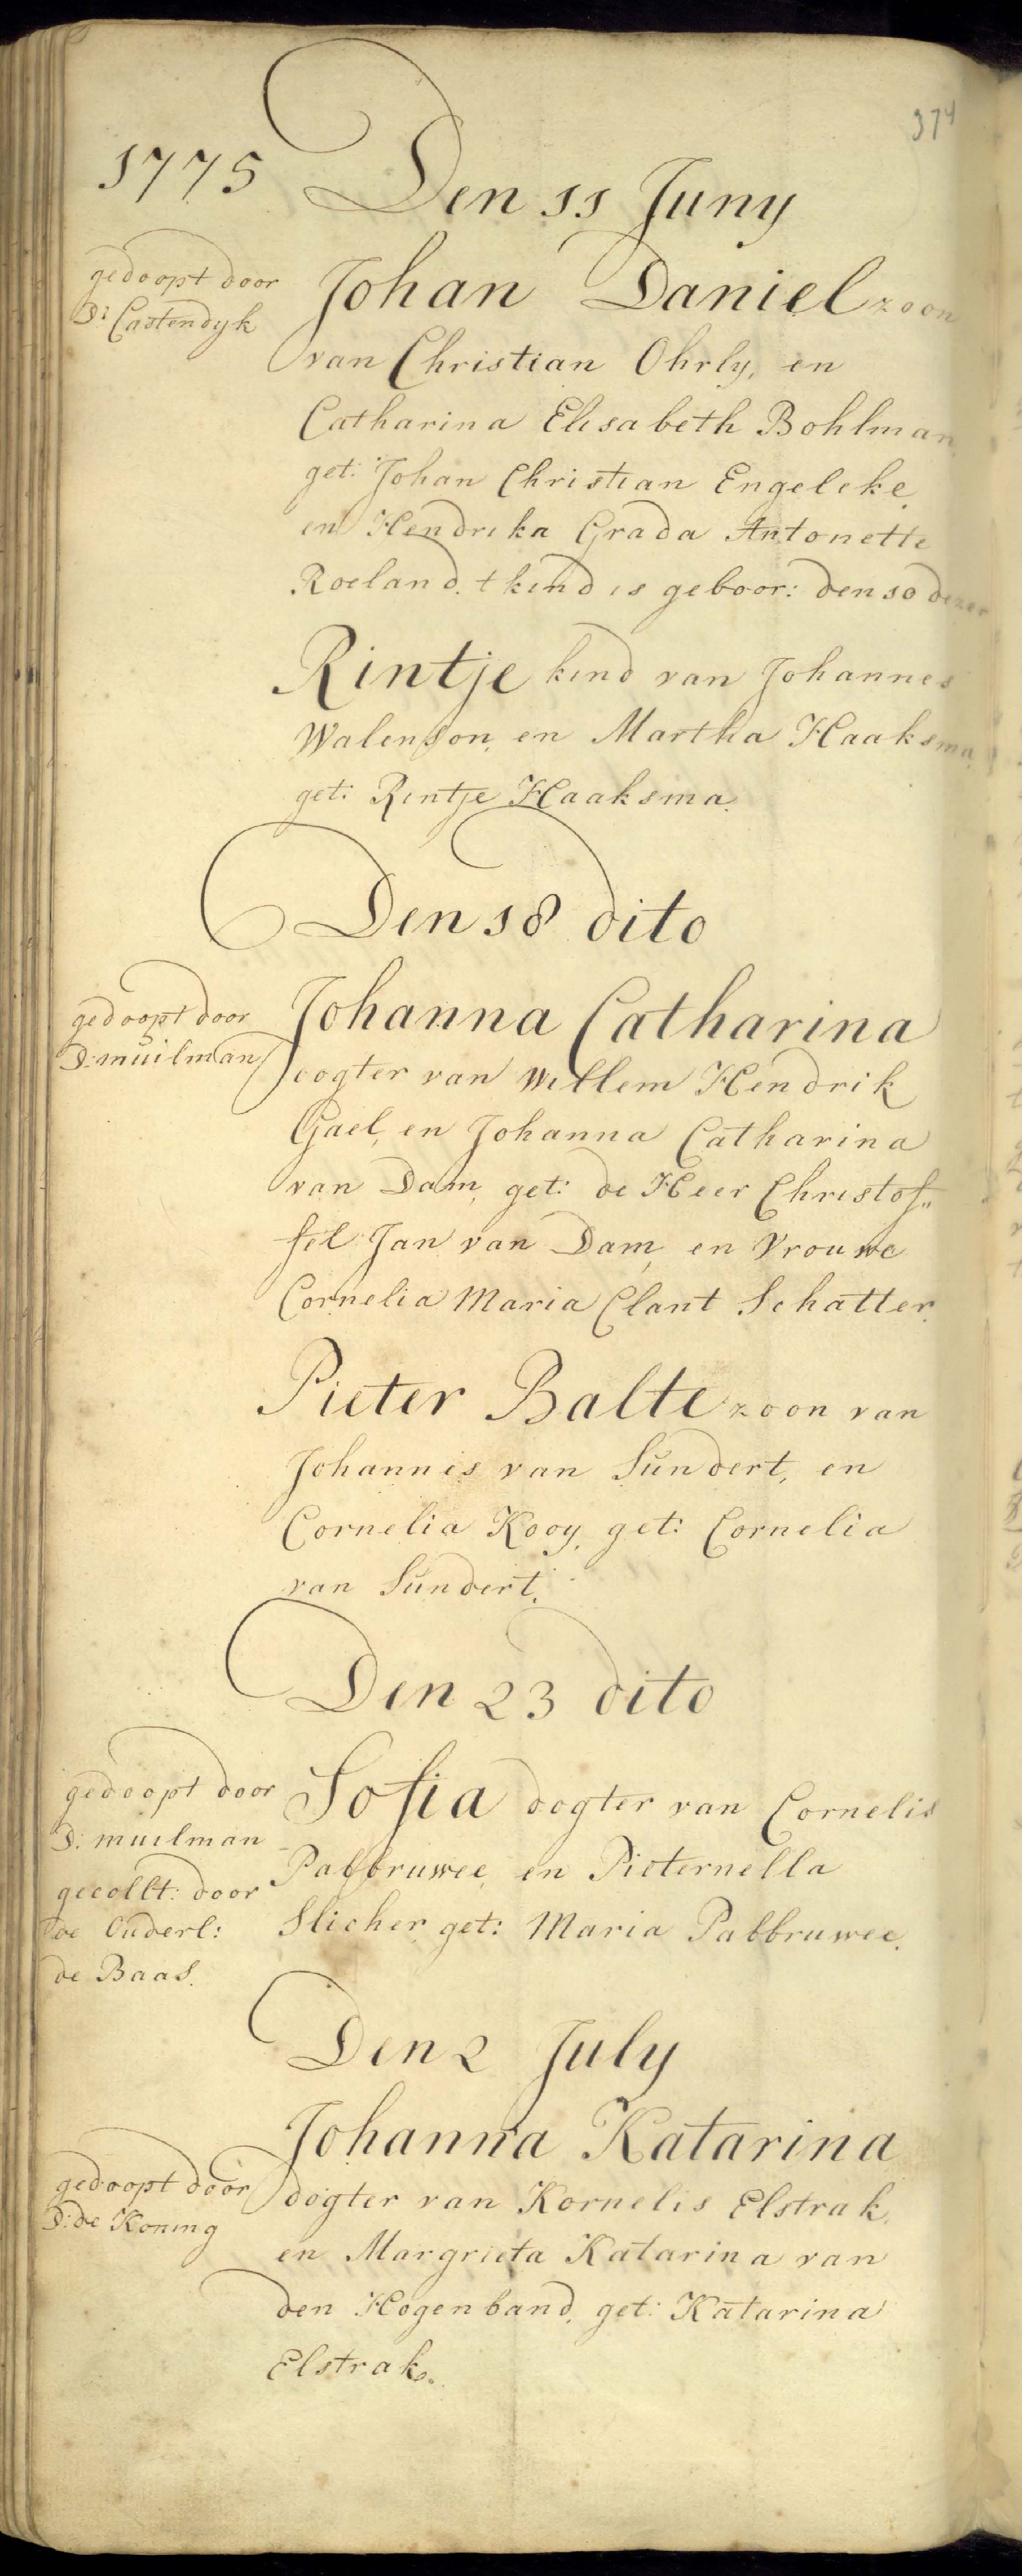 374
1775 Den 11 Juny
gedoopt door
D: Castendyk
Johan Daniel zoon
van Christian Ohrly, en
Catharina Elisabeth Bohlman
get: Johan Christian Engeleke
en Hendrika Grada Antonette
Roeland. t kind is geboor: den 10 dezer
Rintje kind van Johannes
Walenson, en Martha Haaksma,
get: Rintje Haaksma.
Den 18 dito
gedoopt door
D: muilman
Johanna Catharina
dogter van Willem Hendrik
Gael, en Johanna Catharina
van Dam, get: de Heer Christof„
fel Jan van Dam, en Vrouwe
Cornelia Maria Clant Schatter.
Pieter Balte zoon van
Johannis van Sundert, en
Cornelia Kooy, get: Cornelia
van Sundert.
Den 23 dito
gedoopt door
D: muilman
gecollt: door
de Ouderl:
de Baas.
Sofia dogter van Cornelis
Pabbruwee, en Pieternella
Slicher get: Maria Pabbruwee.
Den 2 July
gedoopt door
D: de Koning
Johanna Katarina
dogter van Kornelis Elstrak,
en Margrieta Katarina van
den Hogenband, get: Katarina
Elstrak.